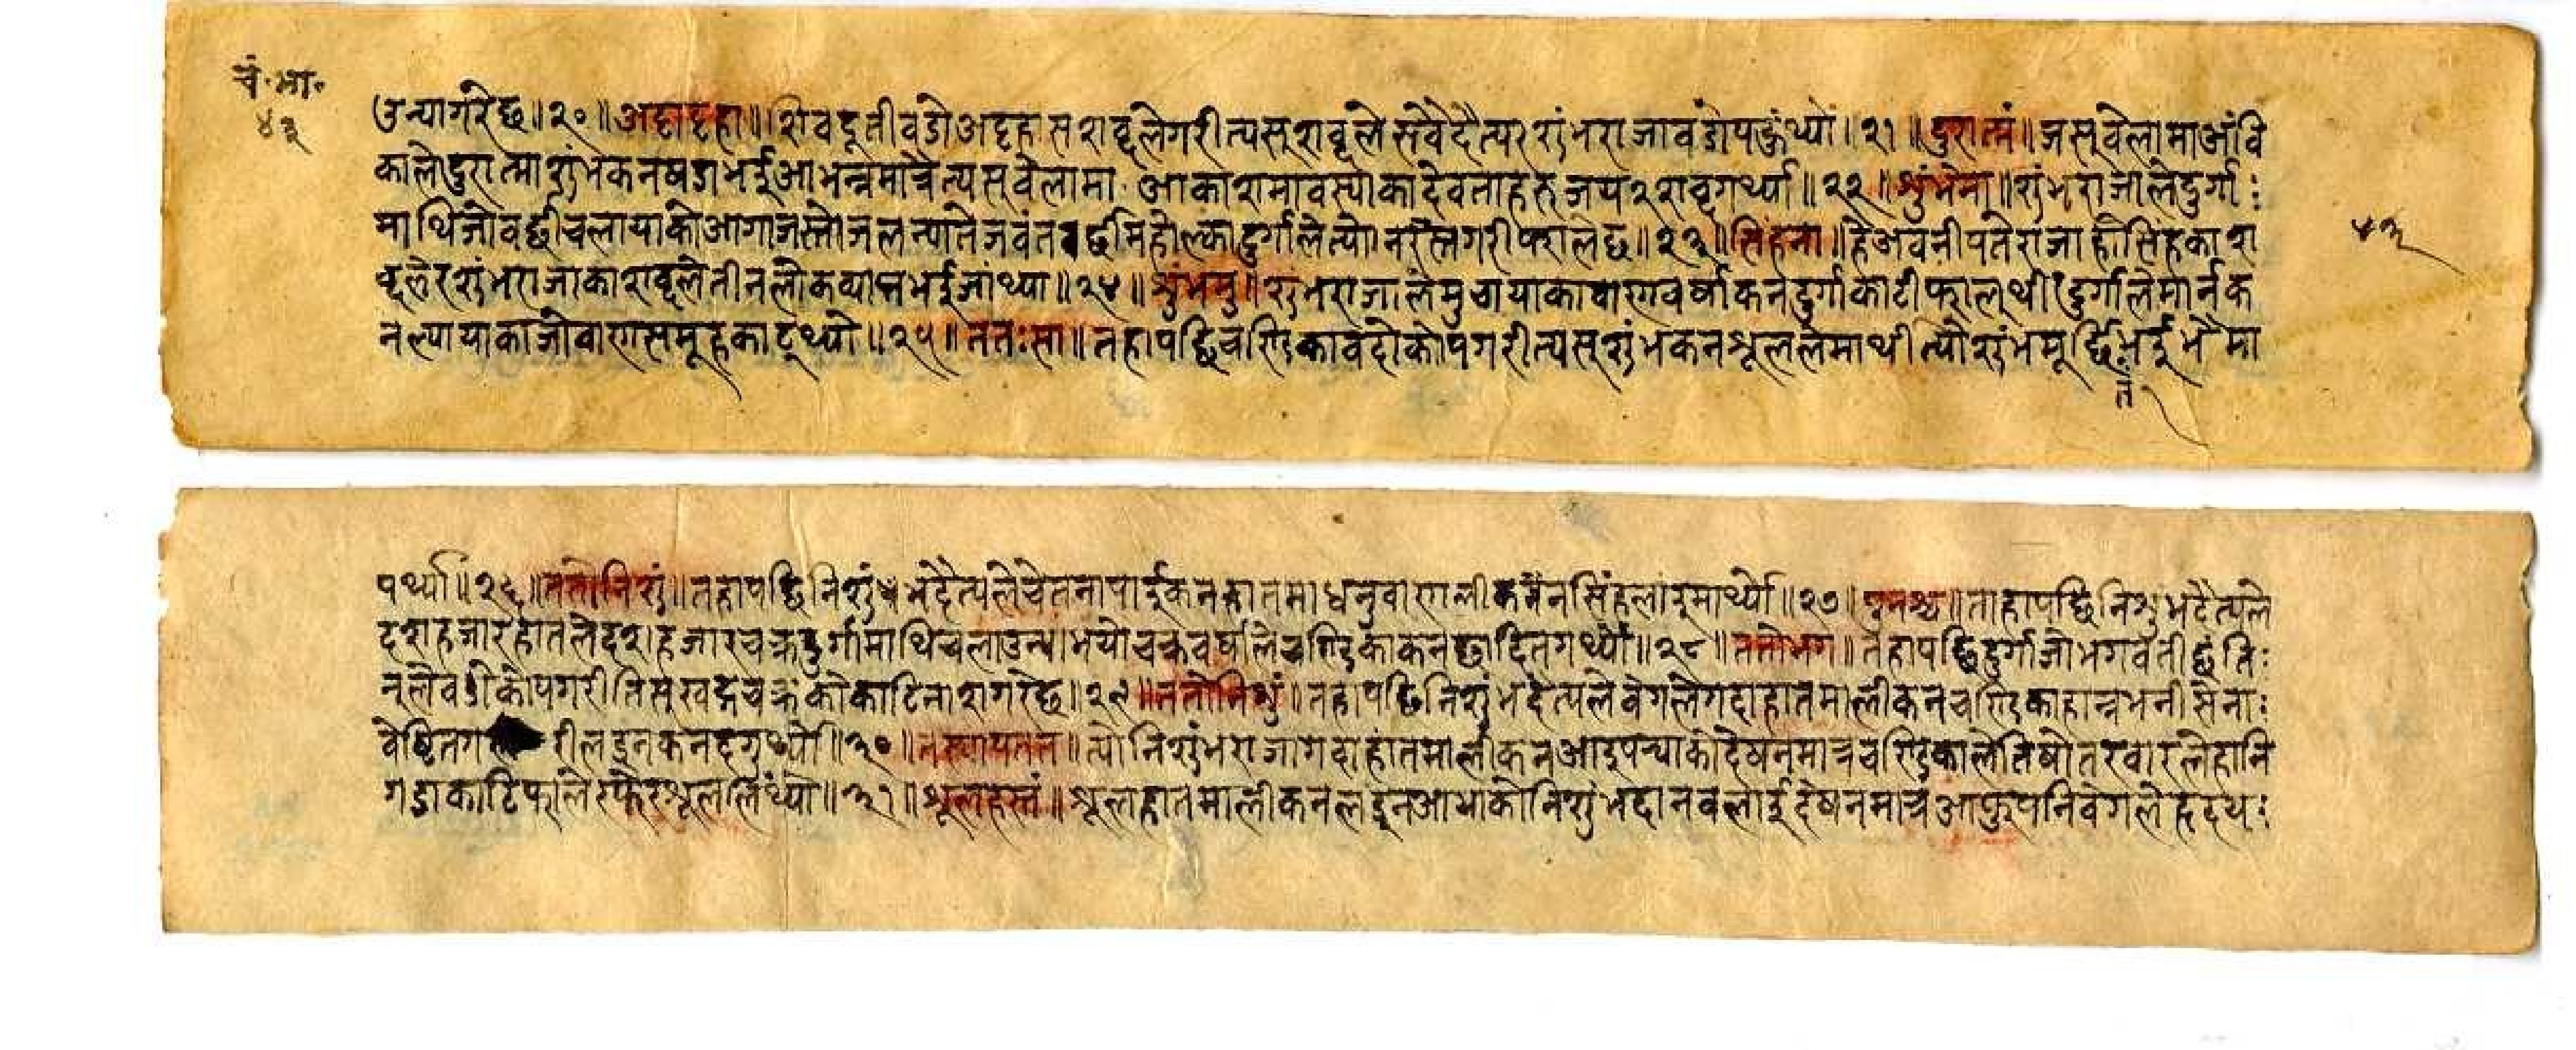 चं.भा.
४३
उन्यागरेछ॥२०॥अट्टाट्टहा॥शिवदूतीवडोअट्टहासशव्दलेगरीत्यसशव्दलेसवैदैत्यररशुंभराजावडोपऊंथ्यो॥२१॥दुरात्मं॥जसवेलामाअंवि
कालेदुरात्माशुंभकनषडाभईआभन्नमात्रैत्यसवेलामा आकाशमावस्याकादेवताहरुजय२शव्दगर्थ्या॥२२॥शुंभेना॥शुंभराजालेदुर्गा
माथिजोवर्छीचलायाकोआगोजस्तोजलन्यातेजवंतवर्छीमहोल्कादुर्गालेत्योनस्त्रगरीफालेछ॥२३॥सिंहना॥हेअवनीपतेराजाहोसिंहकाश
व्दलेरशुंभराजाकाशव्दलेतीनलोकव्याप्तभईजांथ्या॥२४॥शुंभमु॥शुंभराजालेमुचायाकावाणवर्षाकनदुर्गाकाटीफाल्थी।दुर्गालेमार्नक
नल्यायाकाजोवाणसमूहकाट्थ्यो॥२५॥ततःसा॥तहापछिचण्डिकावडोकोपगरीत्यसशुंभकनशूललेमाथीत्योशुंभमूर्छितभईभैमा
४३
पर्थ्यो॥२६॥ततोनिशुं॥तहापछिनिशुंभदैत्यलेचेतनापाईकनहातमाधनुवाणलीकनसिंहलाईमार्थ्यो॥२७॥पुनश्च॥ताहापछिनिशुंभदैत्यले
दशहजारहातलेदशहजारचक्रदुर्गामाथिचलाउन्याभयोचक्रवर्षालेचण्डिकाकनछादितगर्थ्यो॥२८॥ततोभग॥तहापछिदुर्गाजोभगवतीछंति
नुलेवडोकोपगरीतिसखड्गचक्रकोकाटिनाशगरेछ॥२९॥ततोनिशुं॥तहापछिनिशुंभदैत्यलेवेगलेगदाहातमालीकनचण्डिकाहान्नभनीसेना
वेष्टितगरीलडनकनहगुर्थ्यो॥३०॥तस्यापतत॥त्योनिशुंभराजागदाहातमालीकनआइपन्याकोदेषनमात्रचण्डिकालेतिषोतरवारलेहानि
गडाकाटिफालेरफेरशूललिंथ्यो॥३१॥शूलहस्तं॥शूलहातमालीकनलडनआयाकोनिशुंभदानवलाईदेषनमात्रआफुपनिवेगलेहृदय